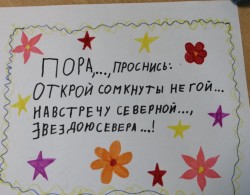 ПОРА,...,ПРОСНИСЬ:
ОТКРОЙ СОМКНУТЫ НЕГОЙ...
НАВСТРЕЧУ СЕВЕРНОЙ...,
ЗВЕЗДОЮ СЕВЕРА...!